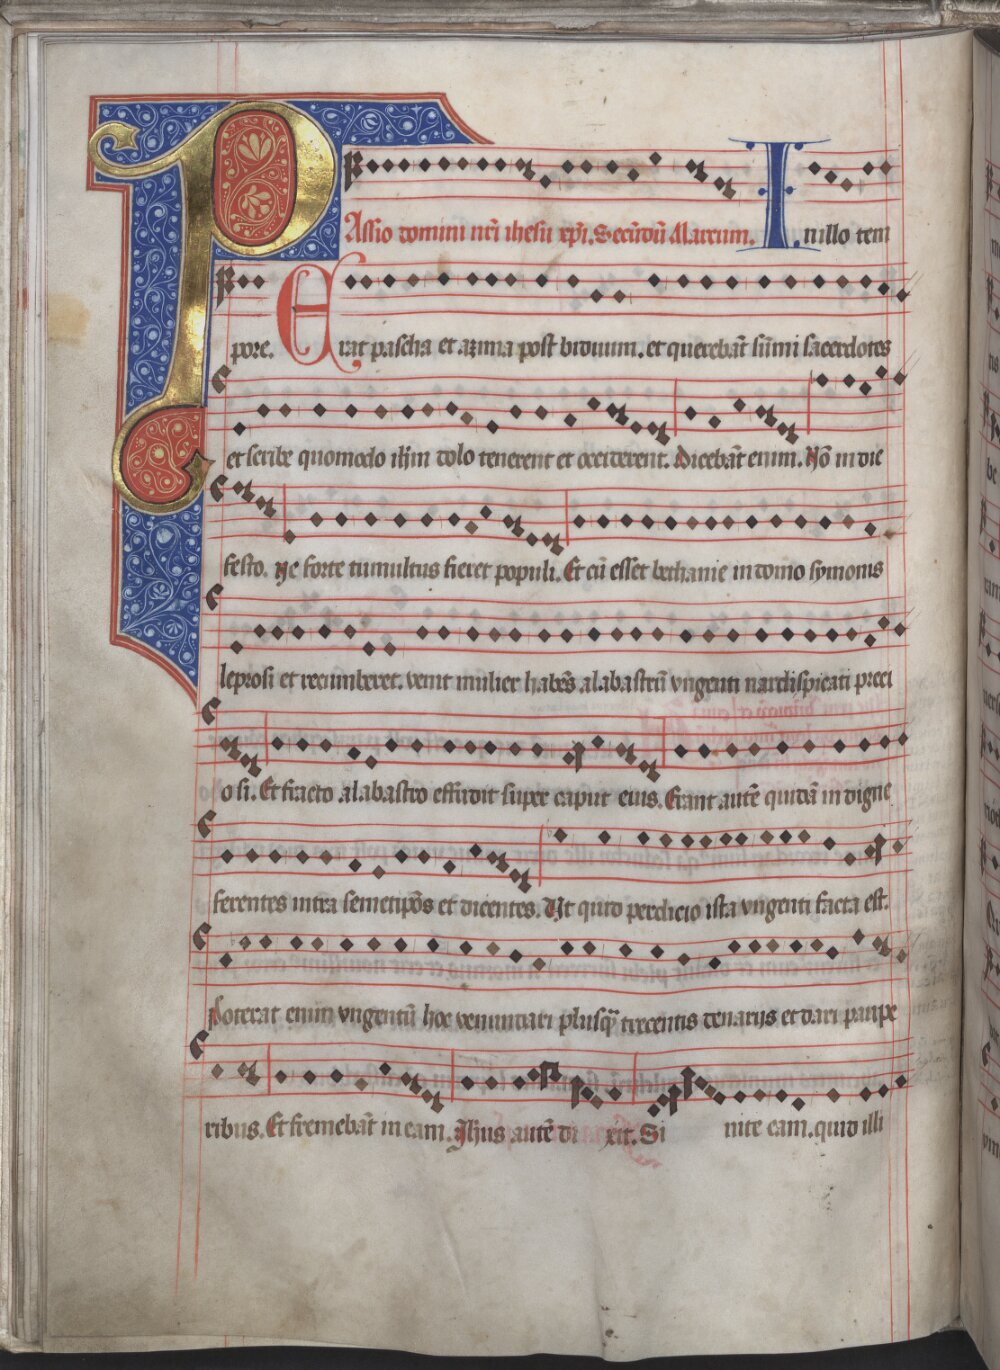 PAssio domini nr̄i ihesu xp̄i. Secūdū Marcum. In illo tem
pore. Erat pascha et azima post biduum. et querebāt sūmi sacerdotes
et scribe quomodo ih̄m dolo tenerent et occiderent. Dicebāt enim. Nō in die
festo. Ne forte tumultus fieret populi. Et cū esset bethanie in domo symonis
leprosi et recumberet. venit mulier habēs alabastrū vngenti nardi spicati preci
osi. Et fracto alabastro effudit super caput eius. Erant autē quidā indigne
ferentes intra semetip̄os et dicentes. Vt quid perdicio ista vngenti facta est.
Poterat enim vngentū hoc venundari plusq̄ trecentis denarijs et dari paupe
ribus. Et fremebāt in eam. Ih̄us autē di xit. Si nite eam. quid illi